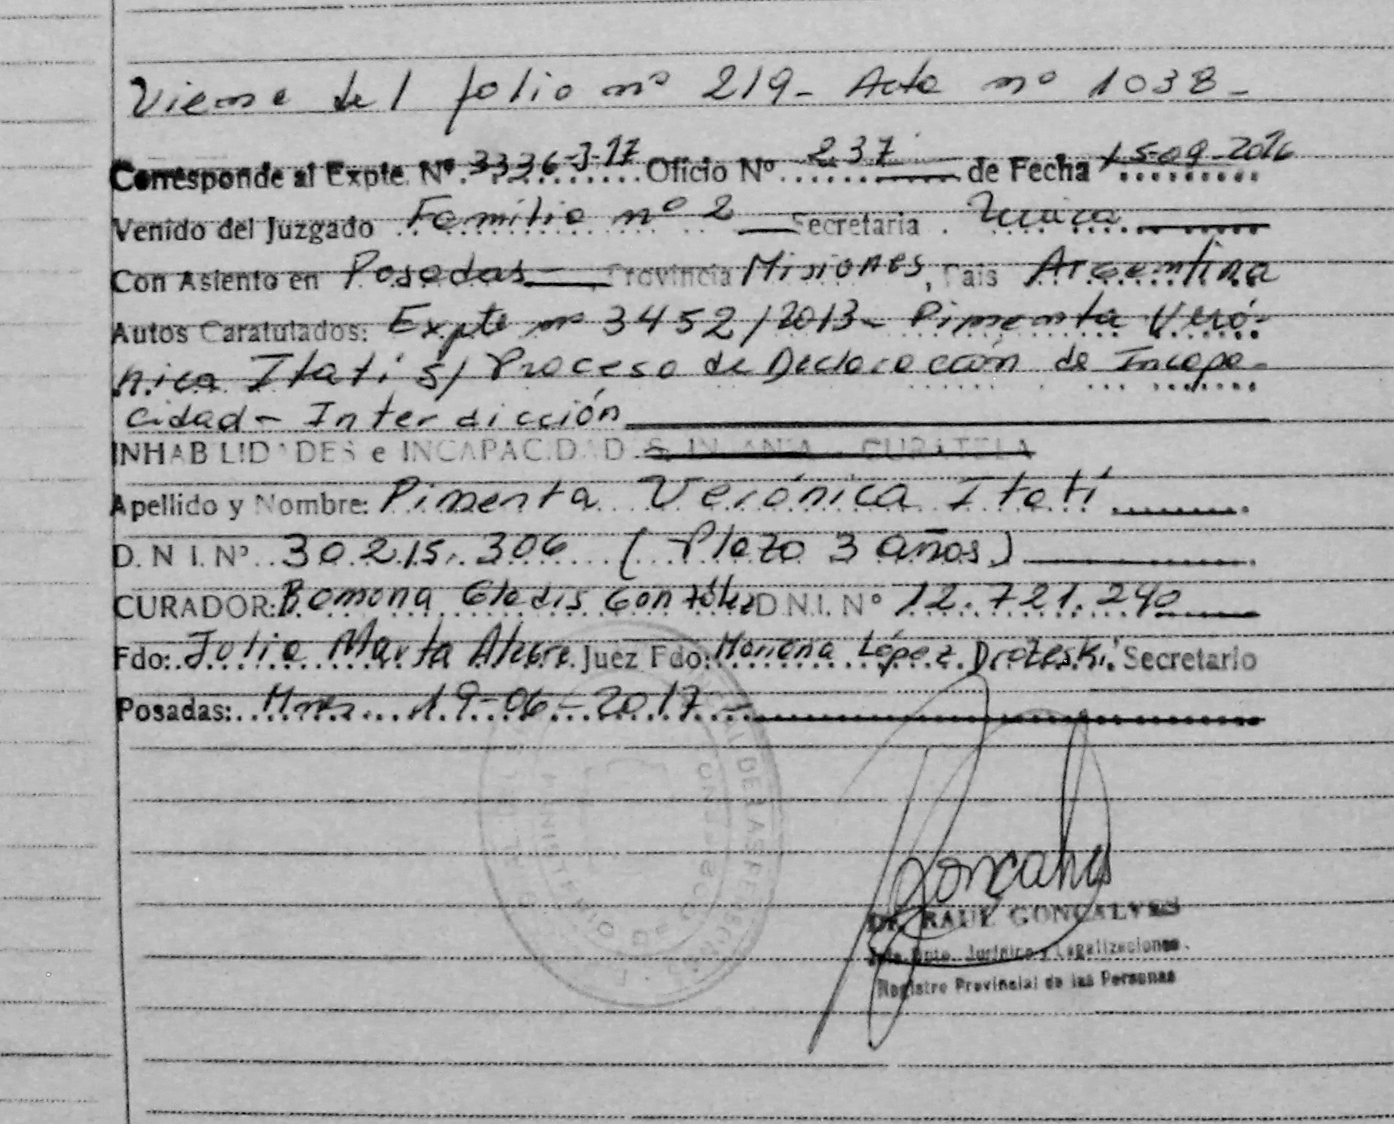 Viene del folio nº 219- Acta nº 1038-
Corresponde al Expte. Nº 3336-J-17 Oficio Nº 237 de Fecha 15-09-2016
Venido del Juzgado Familia nº 2 Secretaria Unica
Con Asiento en Posadas Provincia Misiones, Pais Argentina
Autos Caratulados: Expte nº 3452/2013- Pimenta Veró-
nica Itatí s/ Proceso de Declaración de Incapa-
cidad- Interdicción
INHABILIDADES e INCAPACIDADES INSANIA - CURATELA
Apellido y Nombre: Pimenta Verónica Itatí
D. N I. Nº 30.215.306 (Plazo 3 años)
CURADOR: Ramona Gladis González D.N.I. Nº 12.721.240
Fdo: Julia Marta Alegre Juez Fdo: Morena López Secretario
Posadas: Mnes. 19-06-2017-
DR. RAUL GONCALVES
Jefe Dpto. Jurídico y Legalizaciones
Registro Provincial de las Personas